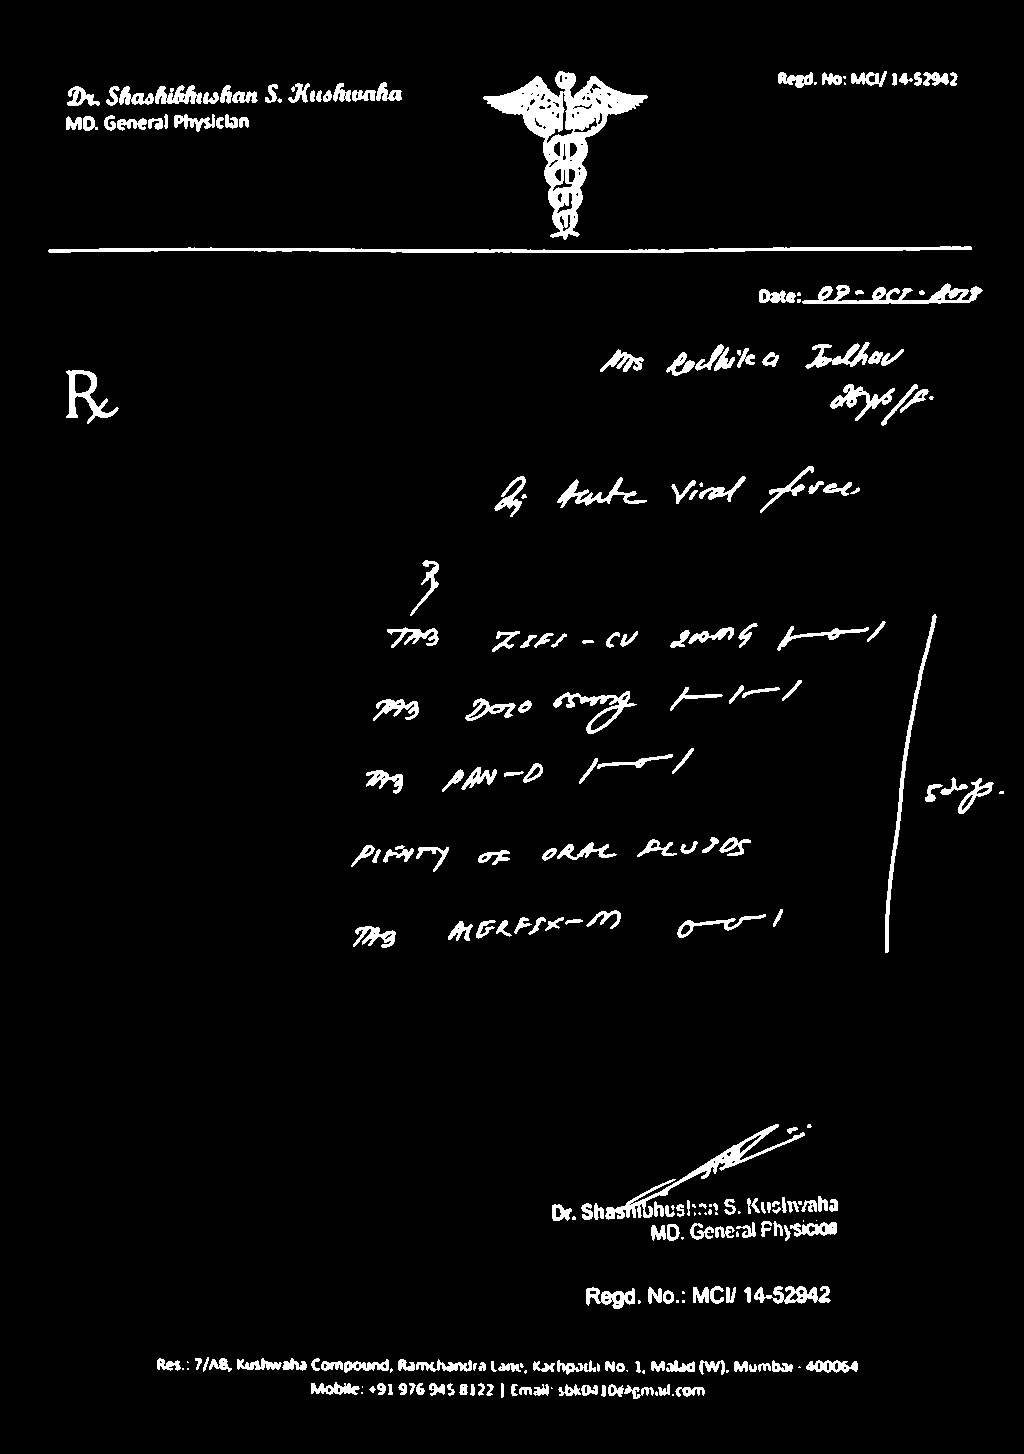 Dr. Shashibhushan S. Kushwaha
MD. General Physician
Regd. No: MCI/ 14-52942
Date: OCT
Ms Radhika Jadhav
28yrs/F.
Acute Viral fever
Rx
TAB ZIFI - CV 200MG 1-0-1
TAB Dolo 650mg 1-1-1
TAB PAN-D 1-0-1
5days.
PLENTY OF ORAL FLUIDS
TAB 0-0-1
Dr. Shashibhushan S. Kushwaha
MD. General Physician
Regd. No.: MCI/ 14-52942
Res.: 7/AB, Kushwaha Compound, Ramchandra Lane, Kachpada No. 1, Malad (W), Mumbai - 400064
Mobile: +91 976 945 8122 | Email: sbk0410@gmail.com